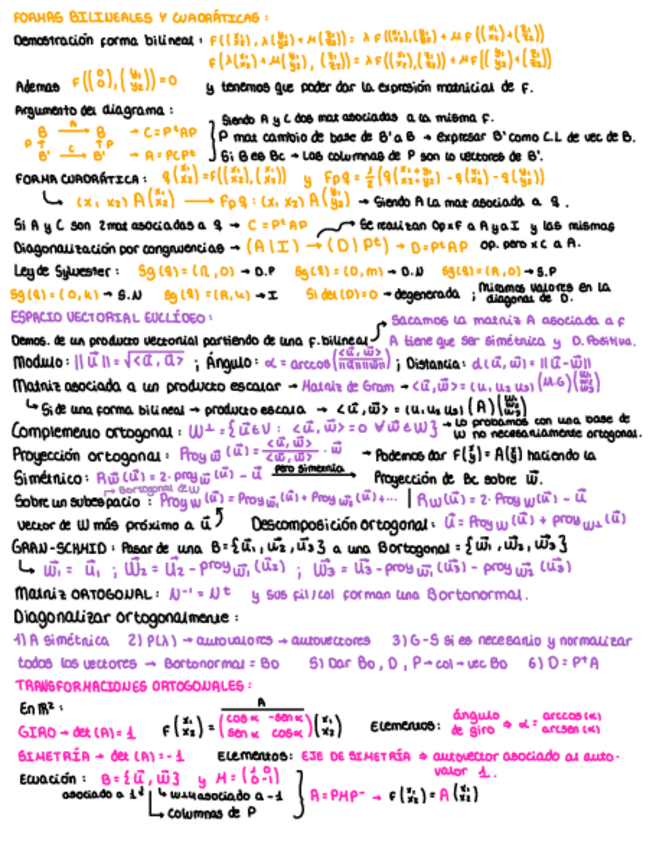 FORMAS BILINEALES Y CUADRÁTICAS :
Demostración forma bilineal : F((x₁ x₂), λ(y₁ y₂)+μ(z₁ z₂)) = λ F((x₁ x₂),(y₁ y₂)) + μF((x₁ x₂),(z₁ z₂))
Ademas F((0 0),(y₁ y₂))=0 y tenemos que poder dar la expresión matricial de F.
Argumento del diagrama :
B —A→ B → C=PᵗAP
B' —C→ B' → A=PCPᵗ
Siendo A y C dos mat asociadas a la misma F.
P mat cambio de base de B' a B → expresar B' como C.L de vec de B.
Si B es Bc → Las columnas de P son lo vectores de B'.
FORMA CUADRÁTICA : q(x₁ x₂)=F((x₁ x₂),(x₁ x₂)) y Fpq = ½(q(x₁+y₁ x₂+y₂) - q(x₁ x₂) - q(y₁ y₂))
↳ (x₁ x₂) A(x₁ x₂) → Fpq : (x₁ x₂) A(y₁ y₂) → Siendo A la mat asociada a q .
Si A y C son 2 mat asociadas a q → C = PᵗAP
Se realizan Op x F a A y a I y las mismas
Diagonalización por congruencias → (A|I) → (D|Pᵗ) → D=PᵗAP op. pero x C a A.
Ley de Sylvester : Sg(q)=(n,0) → D.P Sg(q)=(0,n) → D.N Sg(q)=(k,0) → S.P
Sg(q)=(0,k) → S.N Sg(q)=(k,k) → I Si det(D)=0 → degenerada ; Miramos valores en la diagonal de D.
ESPACIO VECTORIAL EUCLÍDEO :
Sacamos la matriz A asociada a f
Demos. de un producto vectorial partiendo de una F. bilineal A tiene que ser Simétrica y D.Positiva.
Modulo : ||u⃗|| = √<u⃗,u⃗> ; Ángulo : α = arccos(<u⃗,w⃗>/||u⃗||||w⃗||) ; Distancia : d(u⃗,w⃗) = ||u⃗-w⃗||
Matriz asociada a un producto escalar → Matriz de Gram → <u⃗,w⃗> = (u₁ u₂ u₃) (M.G)(w₁ w₂ w₃)
↳ Si de una forma bilineal → producto escala → <u⃗,w⃗> = (u₁ u₂ u₃) (A)(w₁ w₂ w₃)
Complemento ortogonal : W⊥ = {u⃗∈V : <u⃗,w⃗>=0 ∀w⃗∈W} → Lo probamos con una base de W no necesariamente ortogonal.
Proyección ortogonal : Proy w⃗ (u⃗) = <u⃗,w⃗>/<w⃗,w⃗> · w⃗ → Podemos dar F(x y) = A(x y) haciendo la
Simétrico : R w⃗ (u⃗) = 2·proy w⃗ (u⃗) - u⃗ pero simetria Proyección de Bc sobre w⃗.
→ Bortogonal de W
Sobre un subespacio : Proy W (u⃗) = Proy w⃗₁ (u⃗) + Proy w⃗₂ (u⃗) + ... | R W (u⃗) = 2· Proy W (u⃗) - u⃗
vector de W más próximo a u⃗ Descomposición ortogonal : u⃗ = Proy W (u⃗) + proy W⊥ (u⃗)
GRAN-SCHMID : Pasar de una B={u⃗₁,u⃗₂,u⃗₃} a una Bortogonal = {w⃗₁,w⃗₂,w⃗₃}
↳ w⃗₁ = u⃗₁ ; w⃗₂ = u⃗₂ - proy w⃗₁ (u⃗₂) ; w⃗₃ = u⃗₃ - proy w⃗₁ (u⃗₃) - proy w⃗₂ (u⃗₃)
Matriz ORTOGONAL : N⁻¹ = Nᵗ y sus fil/col forman una Bortonormal.
Diagonalizar ortogonalmente :
1) A simétrica 2) P(λ) → autovalores → autovectores 3) G-S si es necesario y normalizar
todos los vectores → Bortonormal = Bo 5) Dar Bo, D, P → col → vec Bo 6) D = PᵗA
TRANSFORMACIONES ORTOGONALES :
En ℝ² :
GIRO → det(A)=1 F(x₁ x₂) = (cos α -sen α sen α cos α)(x₁ x₂) Elementos: ángulo de giro → α = arccos(α) arcsen(α)
SIMETRÍA → det(A)=-1 Elementos: EJE DE SIMETRÍA → autovector asociado al autovalor 1.
Ecuación : B={u⃗,w⃗} y M=(1 0 0 -1)
asociado a 1 ↳ w⃗ asociado a -1
↳ columnas de P
A=PMP⁻ → F(x₁ x₂) = A(x₁ x₂)